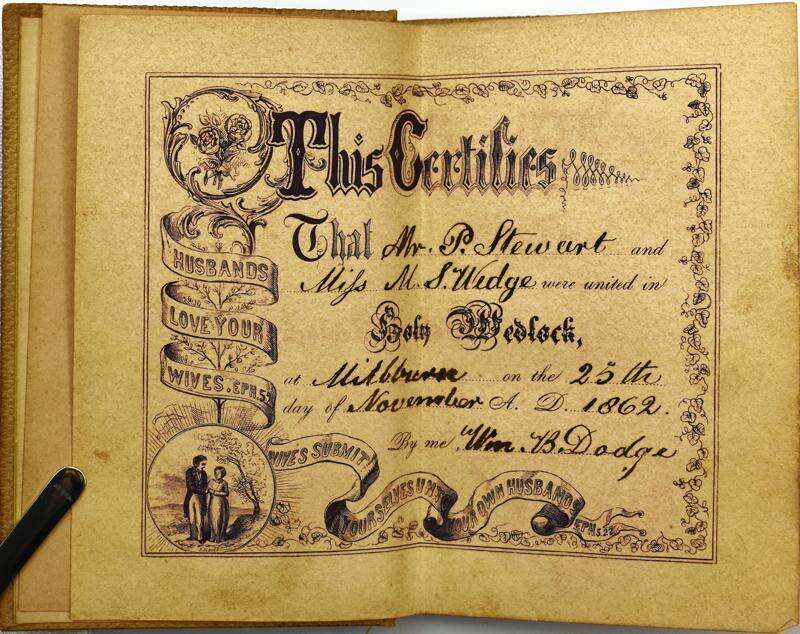 This Certifies
That Mr. P. Stewart and
Miss M. S. Wedge were united in
Holy Wedlock,
at Millburn on the 25th
day of November A. D. 1862.
By me Wm. B. Dodge
HUSBANDS
LOVE YOUR
WIVES. EPH. 5.
WIVES SUBMIT
YOURSELVES UNTO
YOUR OWN HUSBANDS
EPH. 5.22.